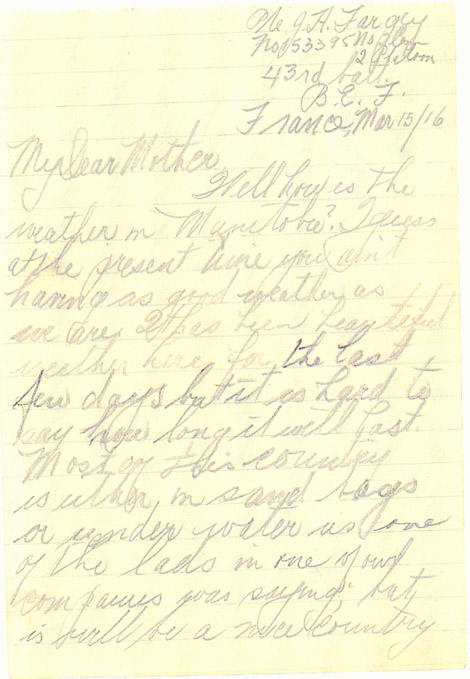 Pte J.H. Fargey
No 153395 No 9 
2 Platoon
43rd batt.
B. E. F.
France, Mar 15/16
My Dear Mother
Well how is the
weather in Manitova? I guess
at the present time you ain't
having as good weather as
we are. It has been beautiful
weather here for the last
few days but it is hard to
say how long it will last.
Most of this country
is either in sand bags
or under water as one
of the lads in one of our
companies was saying, but
is will be a nice country